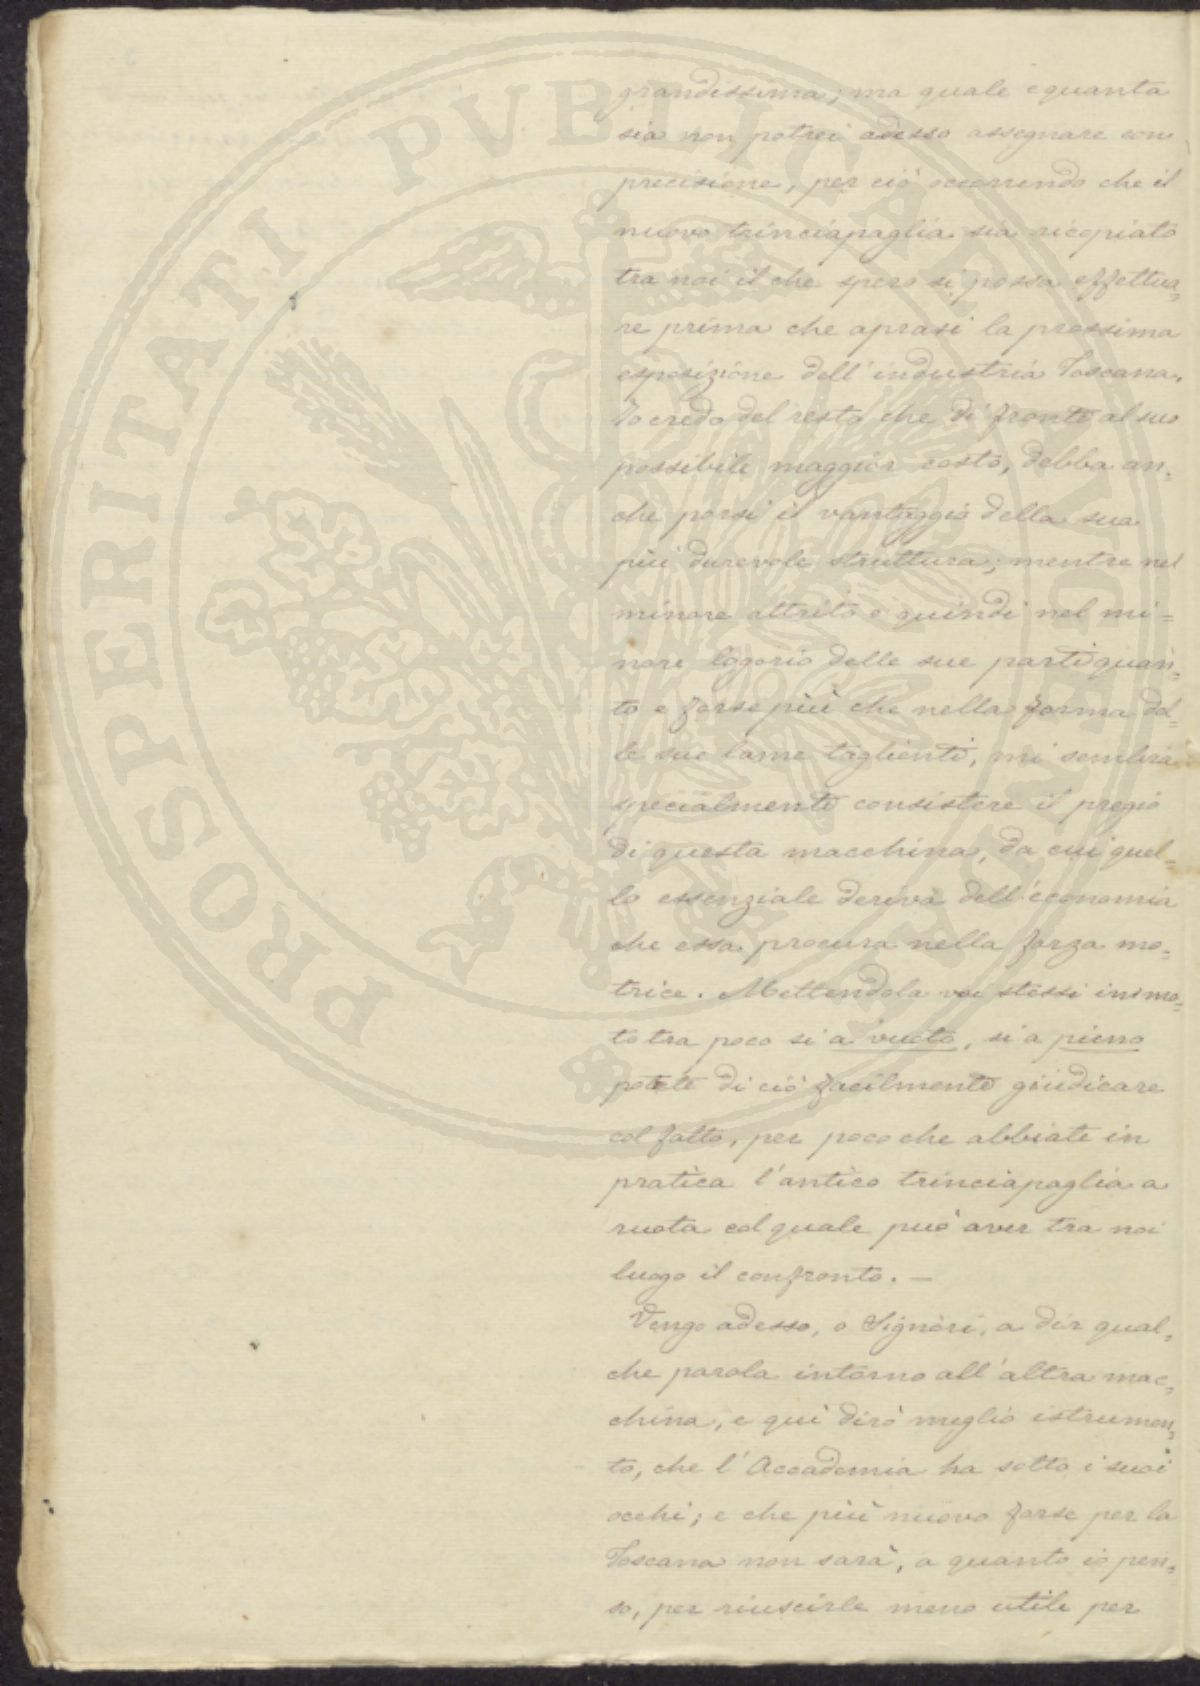 grandissima; ma quale e quanta
sia non potrei adesso assegnare con
precisione, per ciò occorrendo che il
nuovo trinciapaglia sia ricopiato
tra noi il che spero si possa effettua=
re prima che aprasi la prossima
esposizione dell'industria Toscana.
Io credo del resto che di fronte al suo
possibile maggior costo, debba an=
che porsi il vantaggio della sua
più durevole struttura; mentre nel
minore attrito e quindi nel mi=
nore logorio delle sue parti quan=
to e forse più che nella forma del=
le sue lame taglienti, mi sembra
specialmente consistere il pregio
di questa macchina, da cui quel=
lo essenziale deriva dell'economia
che essa procura nella forza mo=
trice. Mettendola voi stessi in mo=
to tra poco sì a vuoto, sì a pieno
potete di ciò facilmente giudicare
col fatto, per poco che abbiate in
pratica l'antico trinciapaglia a
ruota col quale può aver tra noi
luogo il confronto. —
Vengo adesso, o Signori, a dir qual=
che parola intorno all'altra mac=
china, e quì dirò meglio istrumen=
to, che l'Accademia ha sotto i suoi
occhi; e che più nuovo forse per la
Toscana non sarà, a quanto io pen=
so, per riuscirle meno utile per
PROSPERITATI PVBLICAE AVGENDAE